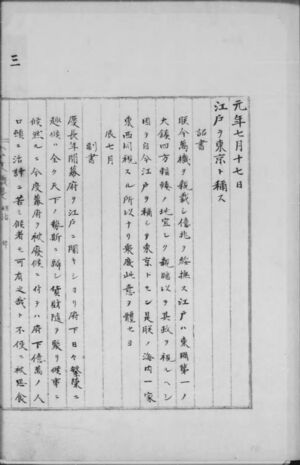 三
元年七月十七日
江戸ヲ東京ト稱ス
詔書
朕今萬機ヲ親裁シ億兆ヲ綏撫ス江戸ハ東國第一ノ
大鎮四方輻輳ノ地宜シク親臨以テ其政ヲ視ルヘシ
因テ自今江戸ヲ稱シテ東京トセン是朕ノ海内一家
東西同視スル所以ナリ衆庶此意ヲ體セヨ
辰七月
副書
慶長年間幕府ヲ江戸ニ開キショリ府下日々繁榮ニ
趣候ハ全ク天下ノ勢斯ニ歸シ貨財隨テ聚リ候事ニ
候然ルニ今度幕府ヲ被廢候ニ付テハ府下億萬ノ人
口頓ニ活計ニ苦ミ候者モ可有之哉ト不便ニ被思食